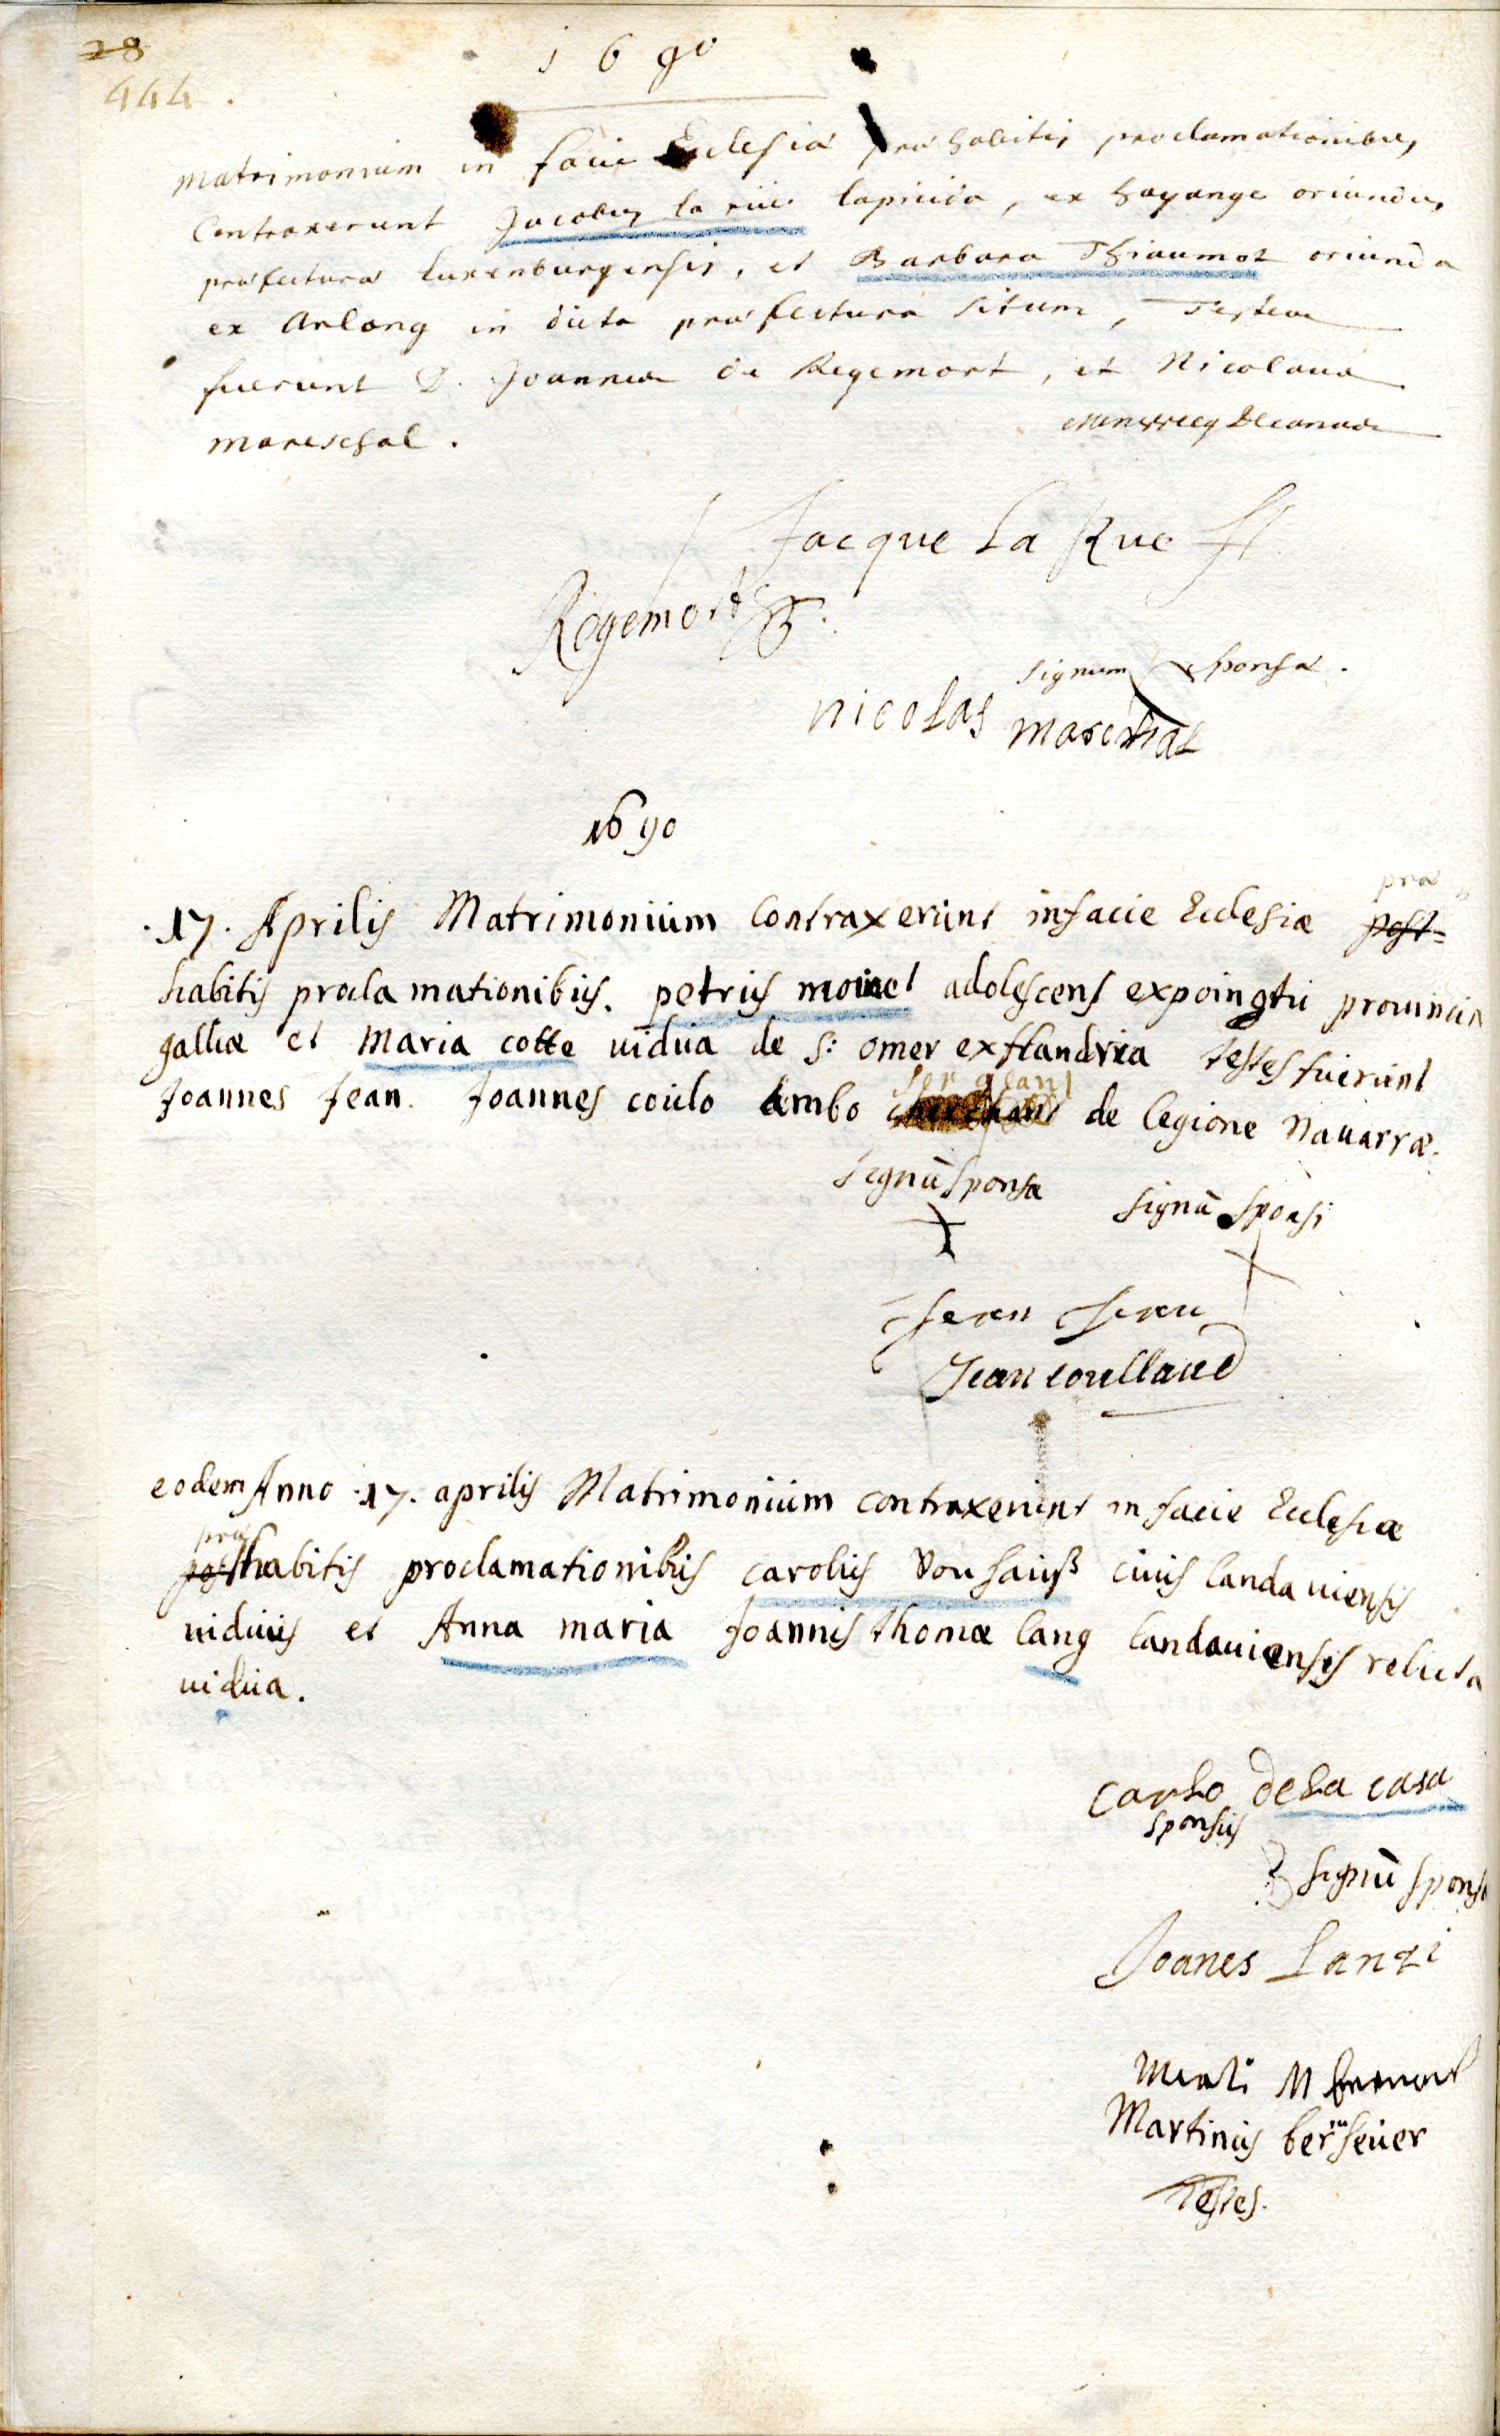 28
444.
1690
matrimonium in facie Ecclesiæ præhabitis proclamationibus,
Contraxerunt Jacobus la riie lapicida, ex hayange oriundus,
præfectura luxenburgensis, et Barbara Thiaumot oriunda
ex Arlong in dicta præfectura situm, Testes
fuerunt D. Joannes de Regemort, et Nicolaus
mareschal.
Decanus
Jacque La Rue
Regemort
signum sponsæ.
nicolas marchal
1690
præ
.17. Aprilis Matrimonium Contraxerunt in facie Ecclesiæ post=
habitis proclamationibus. petrus moinet adolescens ex poingtu prouinciæ
galliæ et maria cotte uidua de S: omer ex flandria testes fuerunt
sergeant
Joannes Jean. Joannes coulo ambo de legione nauarræ.
signū sponsæ signū sponsi
Jean Jean
Jean coullaud
eodem Anno .17. aprilis Matrimonium contraxerunt in facie Ecclesiæ
præ
posthabitis proclamationibus carolus Von hauß ciuis landauiensis
uiduus et Anna maria Joannis thomæ lang landauiensis relicta
uidua.
Carlo de La casa
sponsus
signū sponsæ
Joanes Lanzi
Martinus
testes.